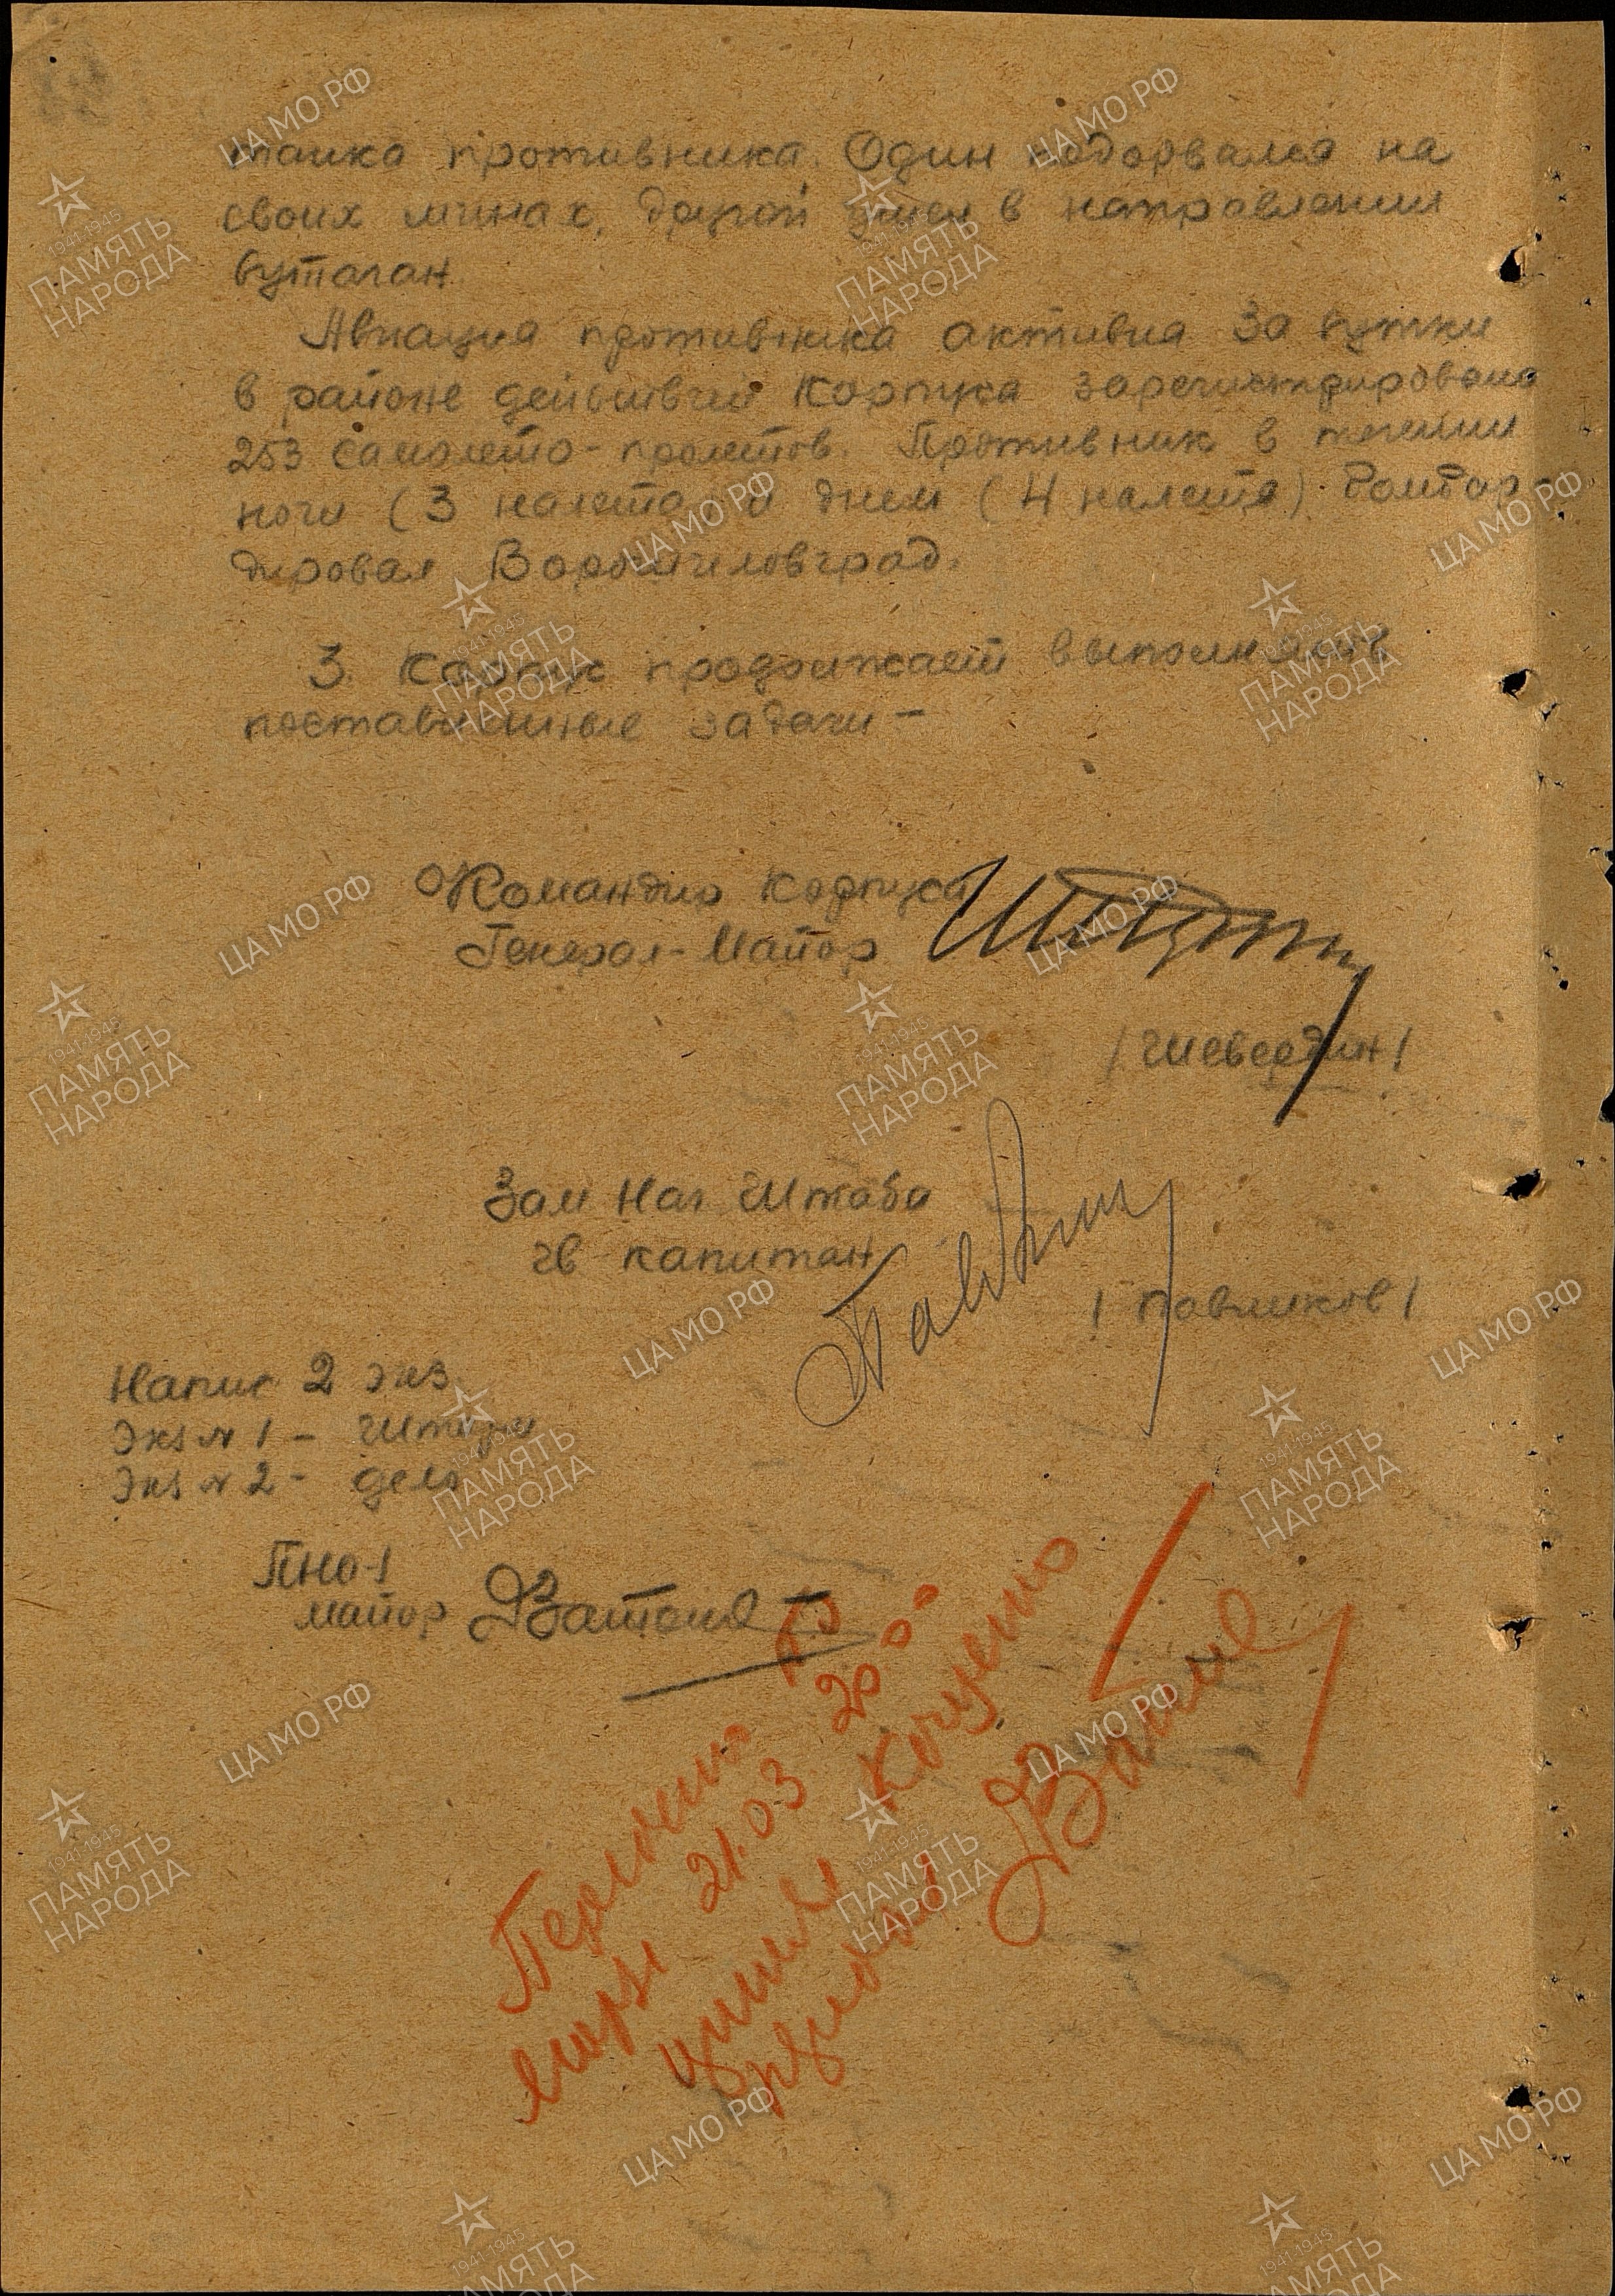 танка противника. Один подорвался на
своих минах, другой ушел в направлении
Бутаган.
Авиация противника активна за сутки
в районе действий корпуса зарегистрировано
253 самолето-пролетов. Противник в течении
ночи (3 налета и днем (4 налета) бомбар-
дировал Ворошиловград.
3. Корпус продолжает выполнять
поставленные задачи –
Командир корпуса
Генерал-Майор
/Шевердин/
Зам Нач Штаба
гв капитан
/Павликов/
Напис 2 экз.
Экз № 1 –
Экз № 2 – дело
ПНО-1
майор
21.03 20 00
ЦА МО РФ
1941-1945
ПАМЯТЬ
НАРОДА